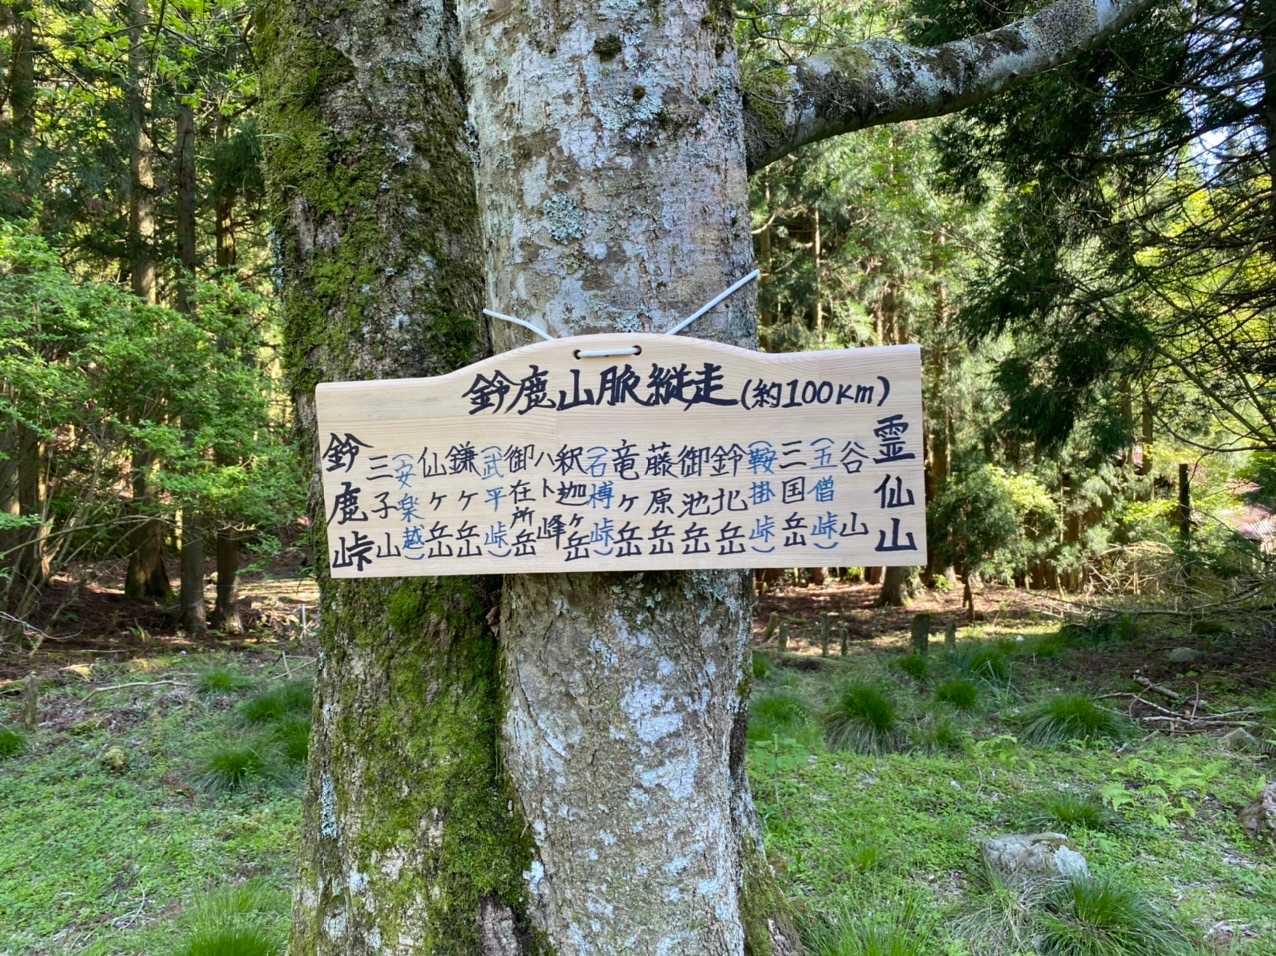 鈴鹿山脈縦走(約100km)
霊仙山
谷山
(五僧峠)
三国岳
(鞍掛峠)
鈴北岳
御池岳
藤原岳
竜ケ岳
(石榑峠)
釈迦ケ岳
ハト峰
御在所岳
(武平峠)
鎌ケ岳
仙ケ岳
(安楽越)
三子山
鈴鹿峠